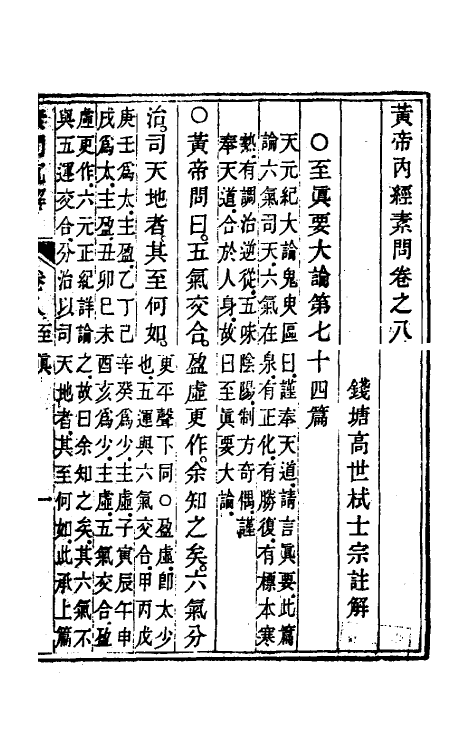 黃帝內經素問卷之八
錢塘高世栻士宗註解
○至眞要大論第七十四篇
天元紀大論鬼臾區曰。謹奉天道。請言眞要。此篇
論六氣司天。六氣在泉。有正化。有勝復。有標本寒
熱。有調治逆從。五味陰陽。制方奇偶。謹
奉天道。合於人身。故曰至眞要大論。
○黃帝問曰。五氣交合。盈虛更作。余知之矣。六氣分
治。司天地者。其至何如。
更平聲下同○盈虛。卽太少
也。五運與六氣交合。甲丙戊
庚壬爲太。主盈。乙丁己辛癸爲少。主虛。子寅辰午申
戌爲太。主盈。丑卯巳未酉亥爲少。主虛。五氣交合。盈
虛更作。六元正紀詳論之。故曰余知之矣。其六氣不
與五運交合。分治以司天地者。其至何如。此承上篇
卷八 至眞 一